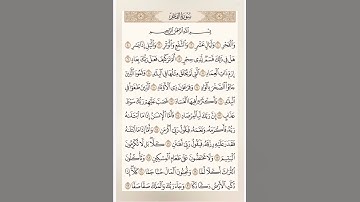 سُورَةُ الفَجْرِ
بِسْمِ ٱللَّهِ ٱلرَّحْمَٰنِ ٱلرَّحِيمِ
وَٱلْفَجْرِ ١ وَلَيَالٍ عَشْرٍ ٢ وَٱلشَّفْعِ وَٱلْوَتْرِ ٣ وَٱلَّيْلِ إِذَا يَسْرِ ٤
هَلْ فِي ذَٰلِكَ قَسَمٌ لِّذِي حِجْرٍ ٥ أَلَمْ تَرَ كَيْفَ فَعَلَ رَبُّكَ بِعَادٍ ٦
إِرَمَ ذَاتِ ٱلْعِمَادِ ٧ ٱلَّتِي لَمْ يُخْلَقْ مِثْلُهَا فِي ٱلْبِلَٰدِ ٨ وَثَمُودَ ٱلَّذِينَ
جَابُوا۟ ٱلصَّخْرَ بِٱلْوَادِ ٩ وَفِرْعَوْنَ ذِي ٱلْأَوْتَادِ ١٠ ٱلَّذِينَ طَغَوْا۟ فِي
ٱلْبِلَٰدِ ١١ فَأَكْثَرُوا۟ فِيهَا ٱلْفَسَادَ ١٢ فَصَبَّ عَلَيْهِمْ رَبُّكَ سَوْطَ
عَذَابٍ ١٣ إِنَّ رَبَّكَ لَبِٱلْمِرْصَادِ ١٤ فَأَمَّا ٱلْإِنسَٰنُ إِذَا مَا ٱبْتَلَىٰهُ
رَبُّهُۥ فَأَكْرَمَهُۥ وَنَعَّمَهُۥ فَيَقُولُ رَبِّي أَكْرَمَنِ ١٥ وَأَمَّا إِذَا مَا ٱبْتَلَىٰهُ
فَقَدَرَ عَلَيْهِ رِزْقَهُۥ فَيَقُولُ رَبِّي أَهَٰنَنِ ١٦ كَلَّا بَل لَّا تُكْرِمُونَ
ٱلْيَتِيمَ ١٧ وَلَا تَحَٰضُّونَ عَلَىٰ طَعَامِ ٱلْمِسْكِينِ ١٨ وَتَأْكُلُونَ
ٱلتُّرَاثَ أَكْلًا لَّمًّا ١٩ وَتُحِبُّونَ ٱلْمَالَ حُبًّا جَمًّا ٢٠ كَلَّا إِذَا
دُكَّتِ ٱلْأَرْضُ دَكًّا دَكًّا ٢١ وَجَاءَ رَبُّكَ وَٱلْمَلَكُ صَفًّا صَفًّا ٢٢